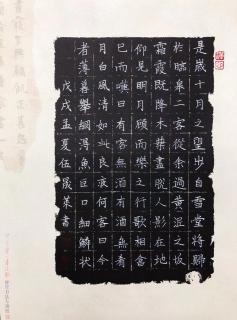 是歲十月之望步自雪堂將歸
於臨皋二客從余過黃泥之坂
霜露既降木葉盡脫人影在地
仰見明月顧而樂之行歌相畣
已而嘆曰有客無酒有酒無肴
月白風清如此良夜何客曰今
者薄暮舉網得魚巨口細鱗狀
戊戌孟夏伍晟葉書